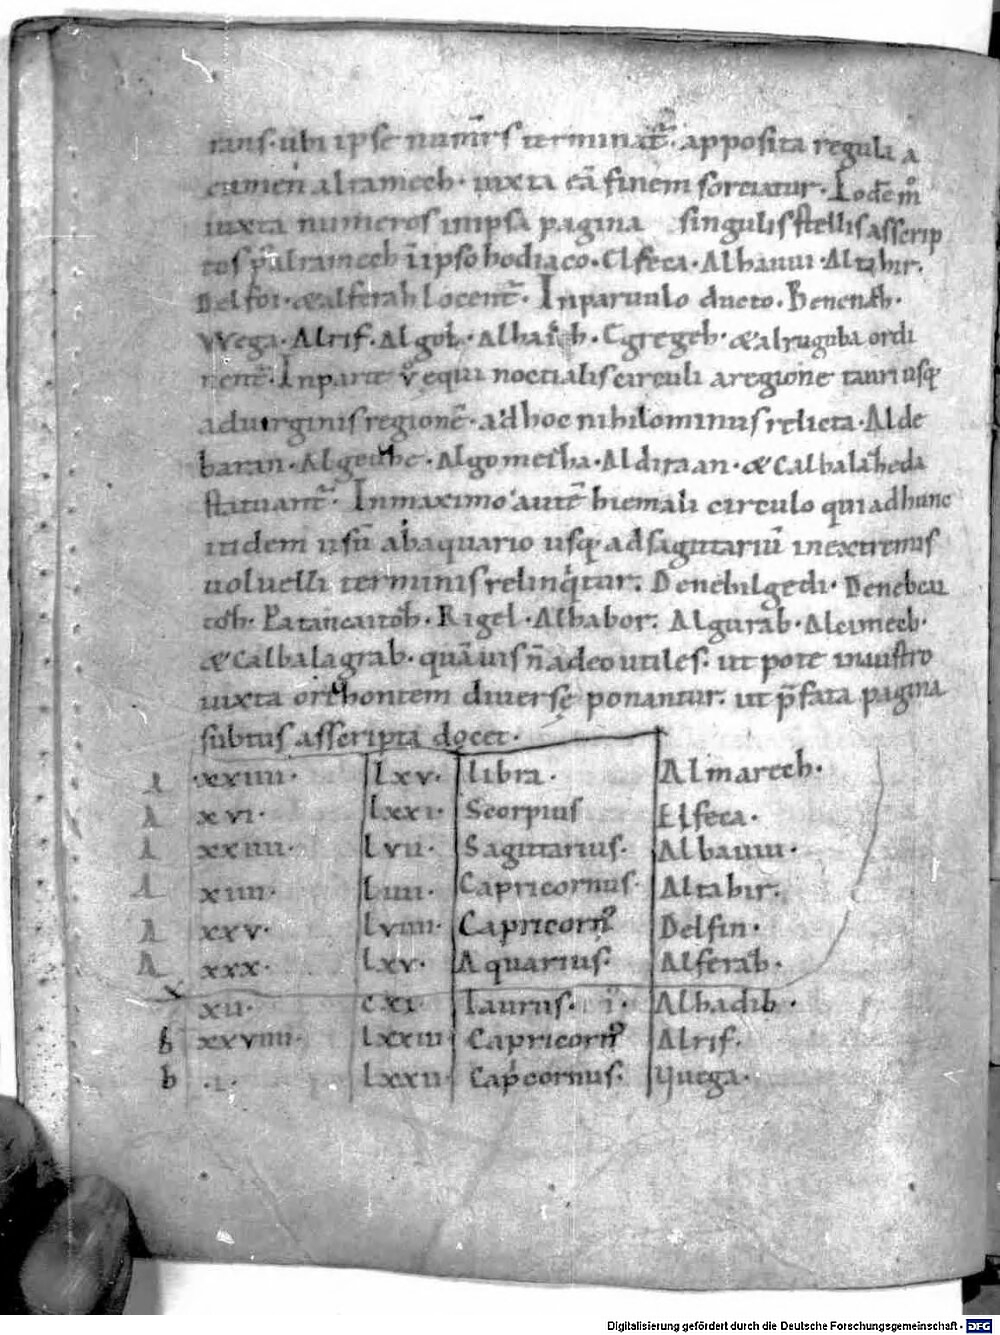 rans. ubi ipse num̄rs terminat̄. apposita regula a
cumen alramech. iuxta eā finem sortiatur. Eodē m̊
iuxta numeros impsa pagina singulis stellis asserip
tos p̄ alramech ī ipso hodiaco. Elfeca. Albauui. Altabir.
Delfin. & alferah locent̄. In paruulo ducto. Benenāb.
Wega. Alrif. Algob. Alhaib. Egregeh. & alruguba ordi
nent̄. In parte v̊ equinoctialis circuli a regione tauri usq̨
ad uirginis regionē. adhoc nihilominus relicta. Alde
baran. Algeuze. Algomeisha. Aldiraan. & Calbalaheda
statuant̄. In maximo autē hiemali circulo qui adhunc
itidem usū ab aquario usq̨ ad sagittariū in extremis
uoluelli terminis relinq̊tur. Denebilgedi. Denebcai
toh. Patancaitoh. Rigel. Alhabor. Algurab. Alcimech.
& Calbalagrab. quāuis n̄ adeo utiles. ut pote in nostro
iuxta orizontem diuersę ponantur. ut p̄fata pagina
subtus asseripta docet.
A .xxiiii. Lxv. Libra. Almarech.
A xvi. Lxxi. Scorpius Elfeca.
A xxiiii. Lvii. Sagittarius. Albauui.
A xiiii. Liii. Capricornus. Altabir.
A xxv. Lviiii. Capricorn᷒ Delfin.
A xxx. Lxv. Aquarius. Alferah.
xii. cxi. Taurus. i. Alhadib.
b xxviiii. Lxxiii Capricorn᷒ Alrif.
b .i. Lxxii. Cap̄cornus. Yuega.
Digitalisierung gefördert durch die Deutsche Forschungsgemeinschaft - DFG